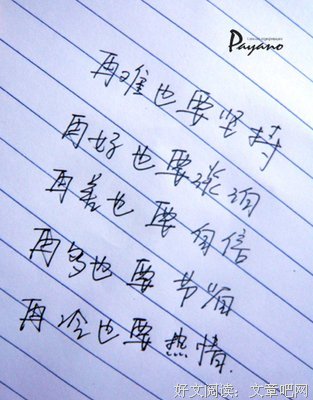 Payano
再难也要坚持
再好也要淡泊
再差也要自信
再多也要节省
再冷也要热情.
好文阅读：文章吧网